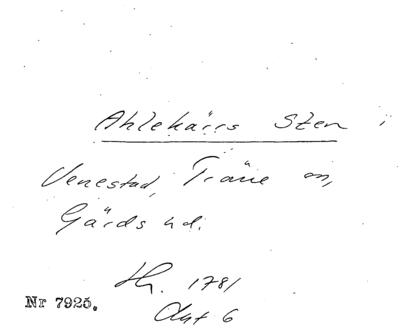 Ahlekärrs Sten
Venestad, Träne sn,
Gärds hd.
1781
6
Nr 7925.